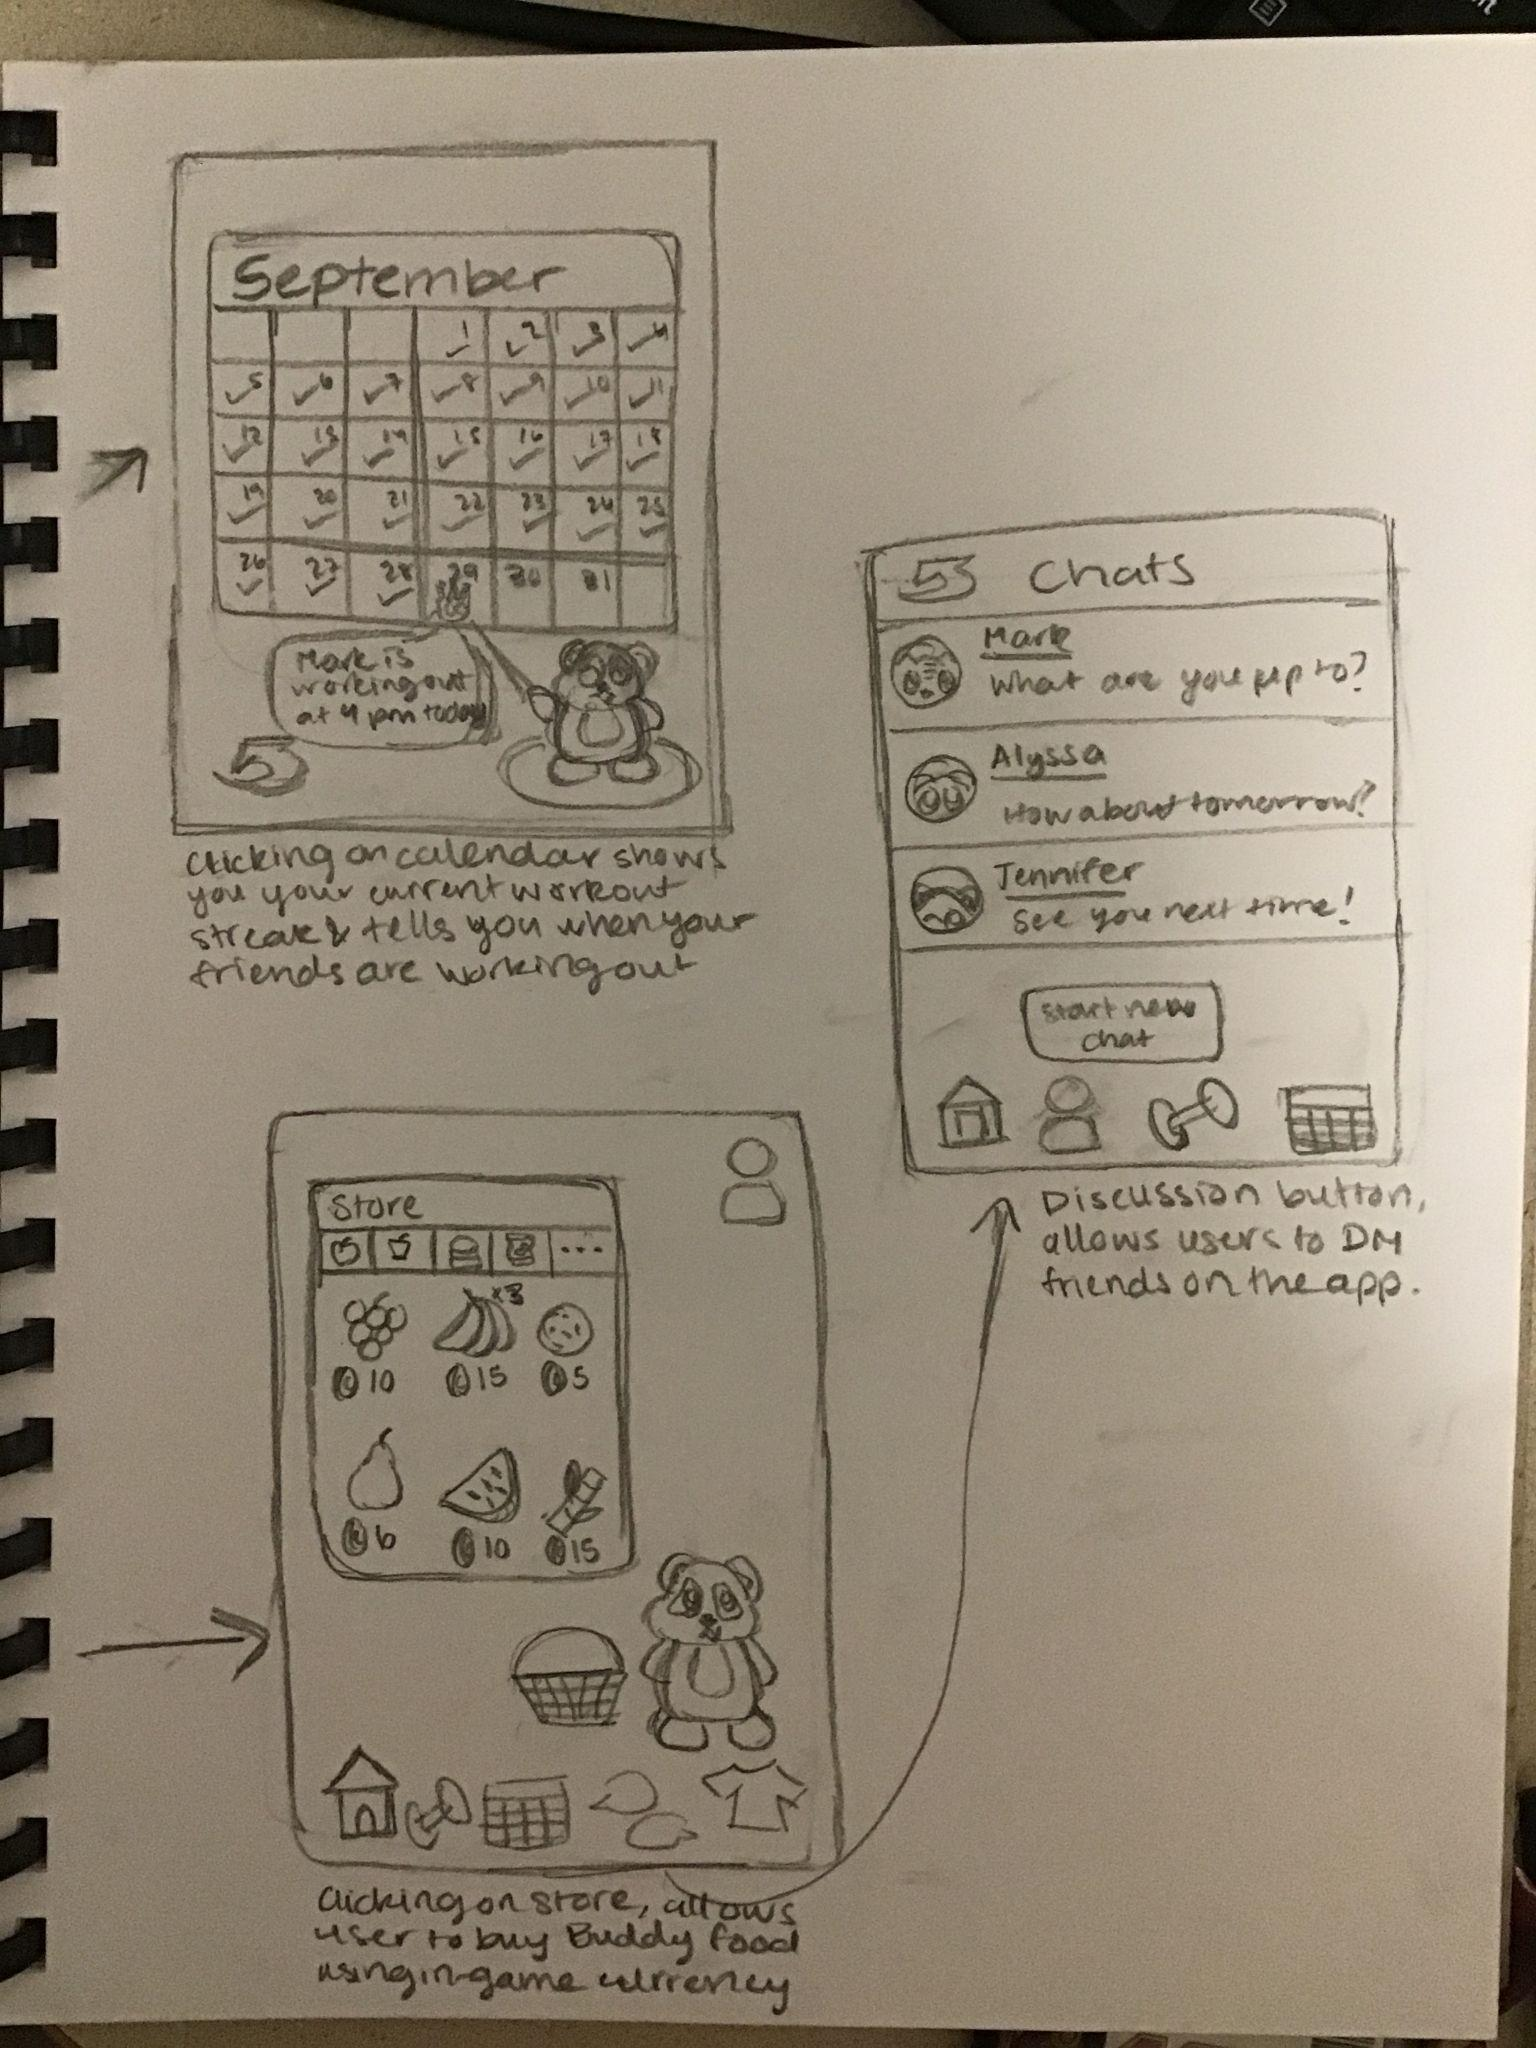 September
1 2 3 4
5 6 7 8 9 10 11
12 13 14 15 16 17 18
19 20 21 22 23 24 25
26 27 28 29 30 31
Mark is
working out
at 4 pm today
Clicking on calendar shows
you your current workout
streak & tells you when your
friends are working out
Chats
Mark
What are you up to?
Alyssa
How about tomorrow?
Jennifer
See you next time!
Start new
chat
Discussion button,
allows users to DM
friends on the app.
Store
...
x3
10 15 5
6 10 15
Clicking on store, allows
user to buy Buddy food
using in-game currency